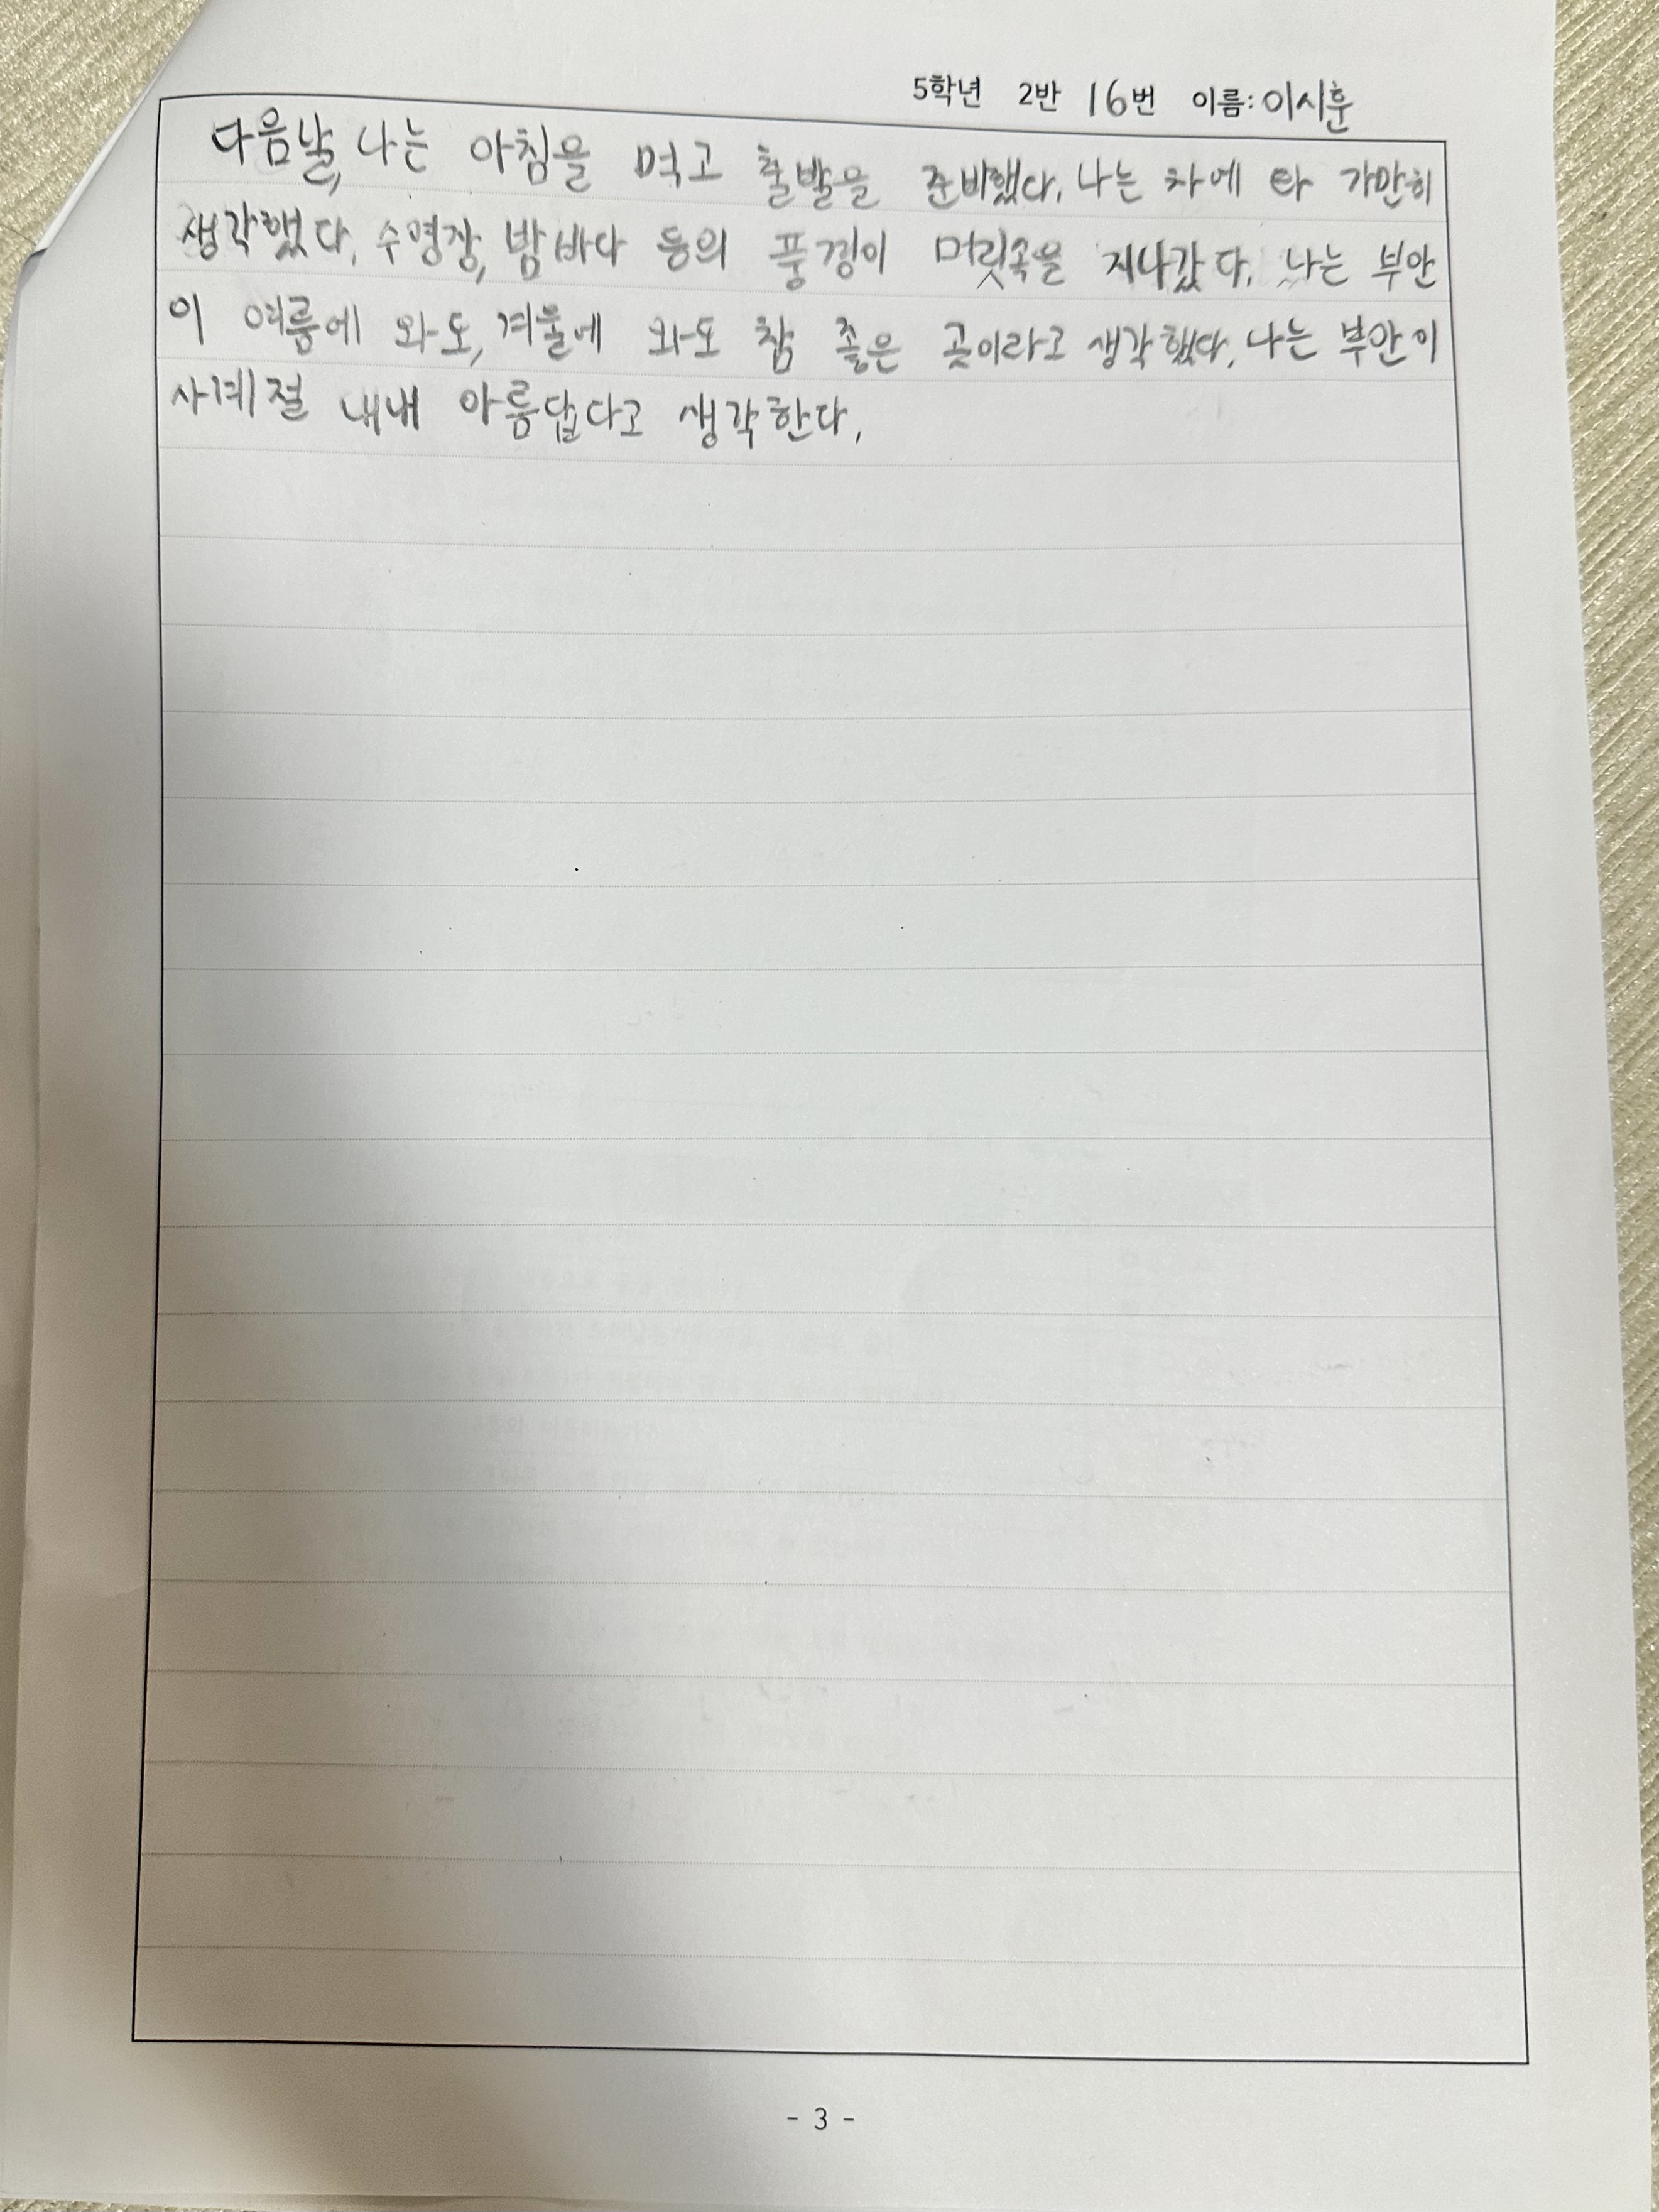 5학년 2반 16번 이름: 이시훈
다음날, 나는 아침을 먹고 출발을 준비했다. 나는 차에 타 가만히
생각했다. 수영장, 밤바다 등의 풍경이 머릿속을 지나갔다. 나는 부안
이 여름에 와도, 겨울에 와도 참 좋은 곳이라고 생각했다. 나는 부안이
사계절 내내 아름답다고 생각한다.
- 3 -